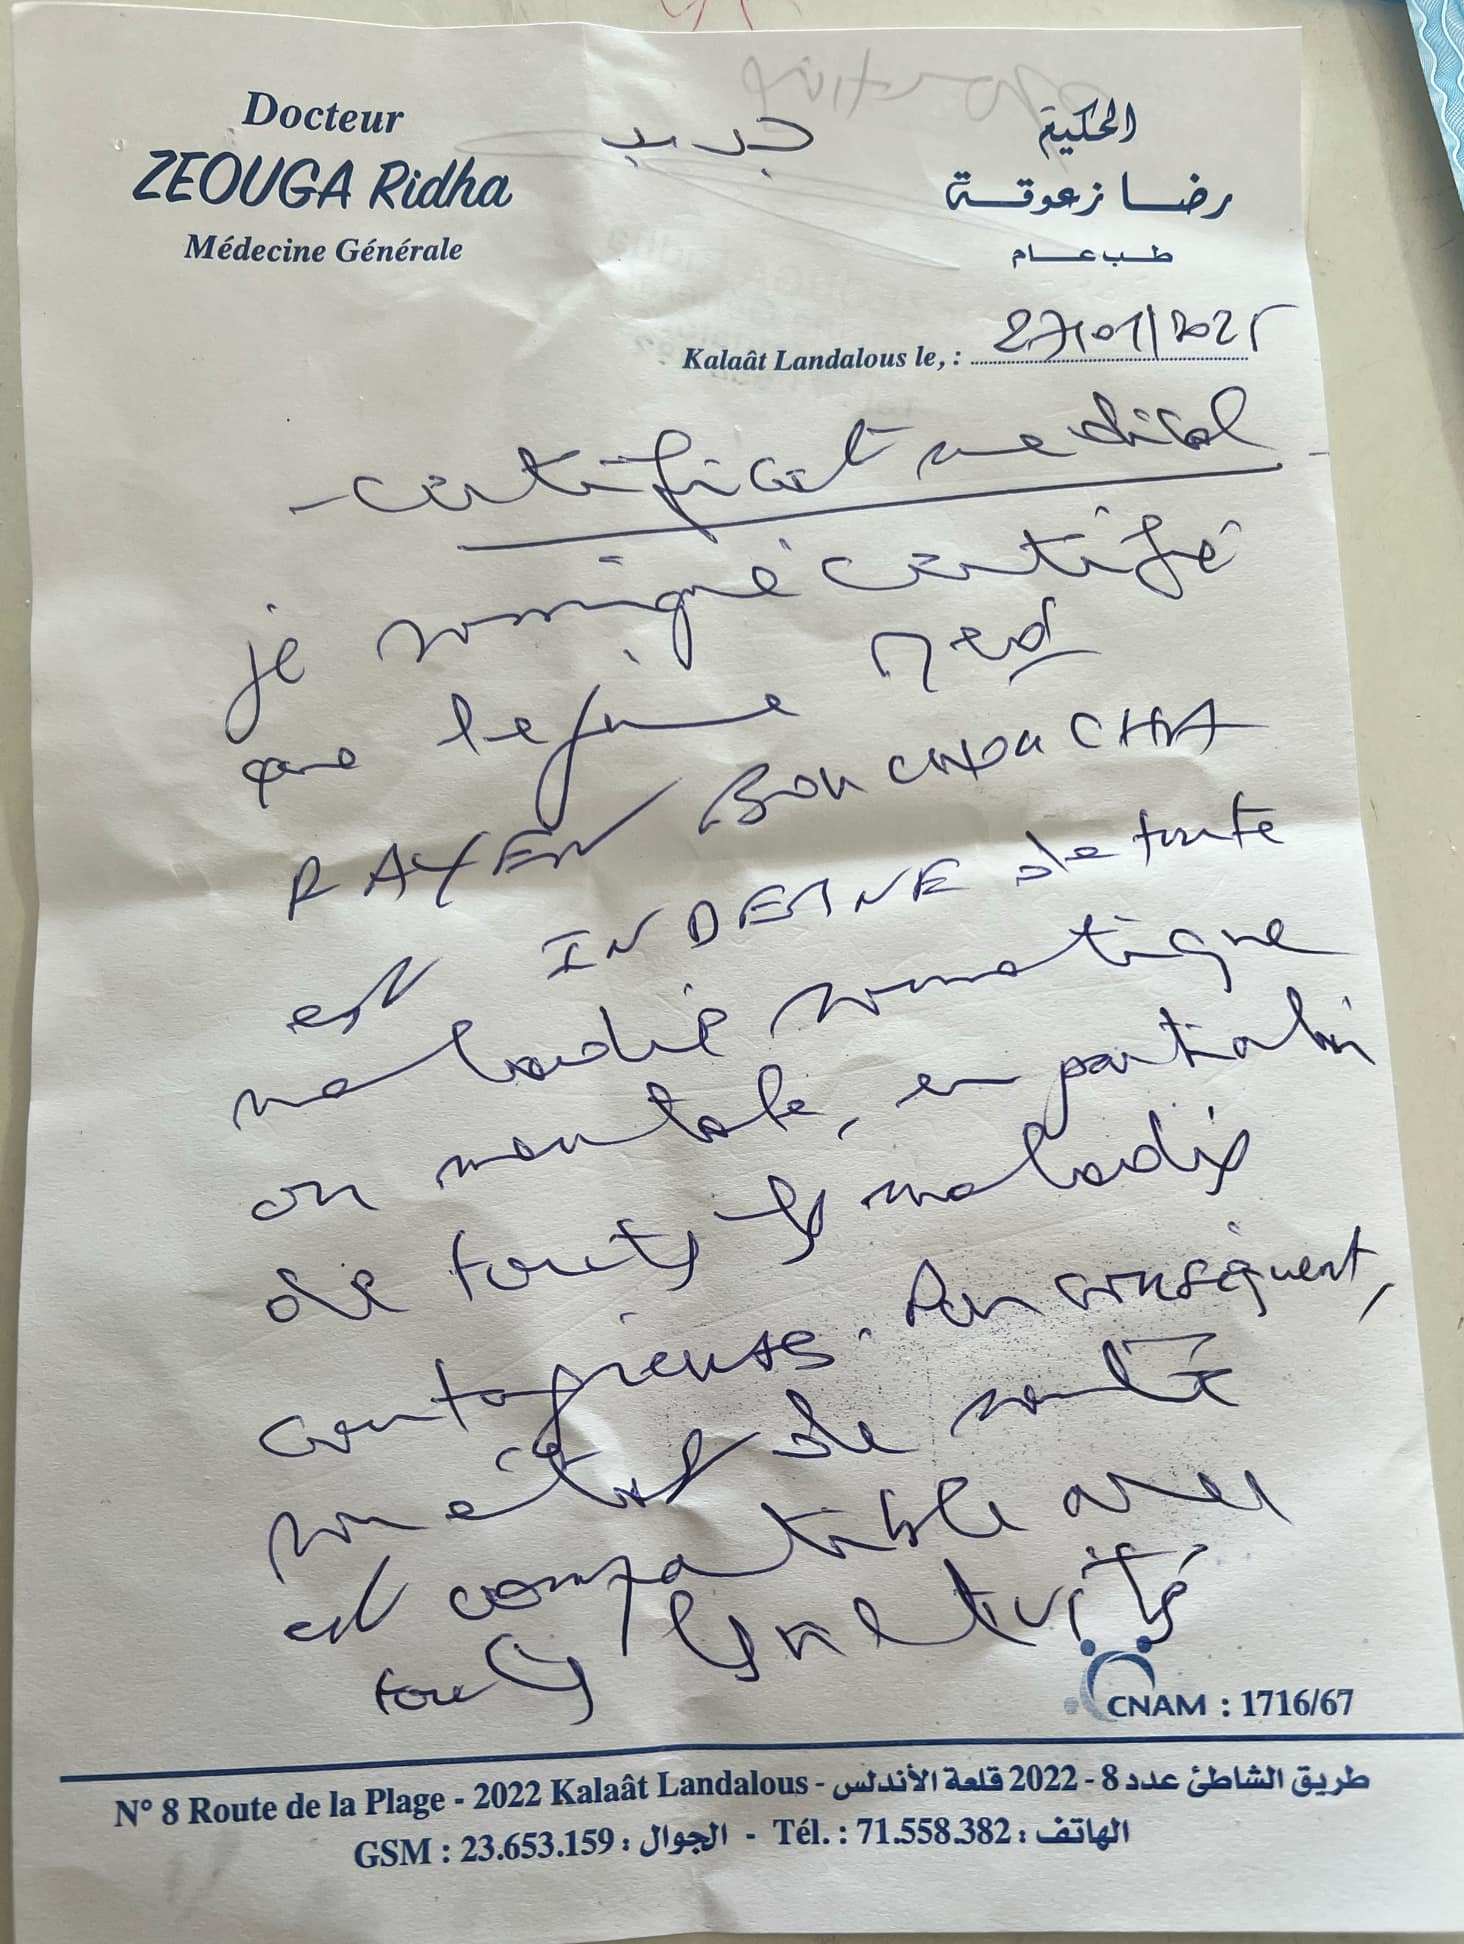 Docteur
ZEOUGA Ridha
Médecine Générale
جديد
الحكيم
رضا زعوقة
طب عام
Kalaât Landalous le, : 27/01/2025
- certificat medical -
je soussigné certifié
que le jeune Med
RAYEN BOUCHOUCHA
est INDEMNE de toute
maladie somatique
ou mentale, en particulier
de toutes les maladies
contagieuses. Par conséquent,
son état de santé
est compatible avec
toutes les activités
CNAM : 1716/67
N° 8 Route de la Plage - 2022 Kalaât Landalous - طريق الشاطئ عدد 8 - 2022 قلعة الأندلس
GSM : 23.653.159 : الجوال - Tél. : 71.558.382 : الهاتف